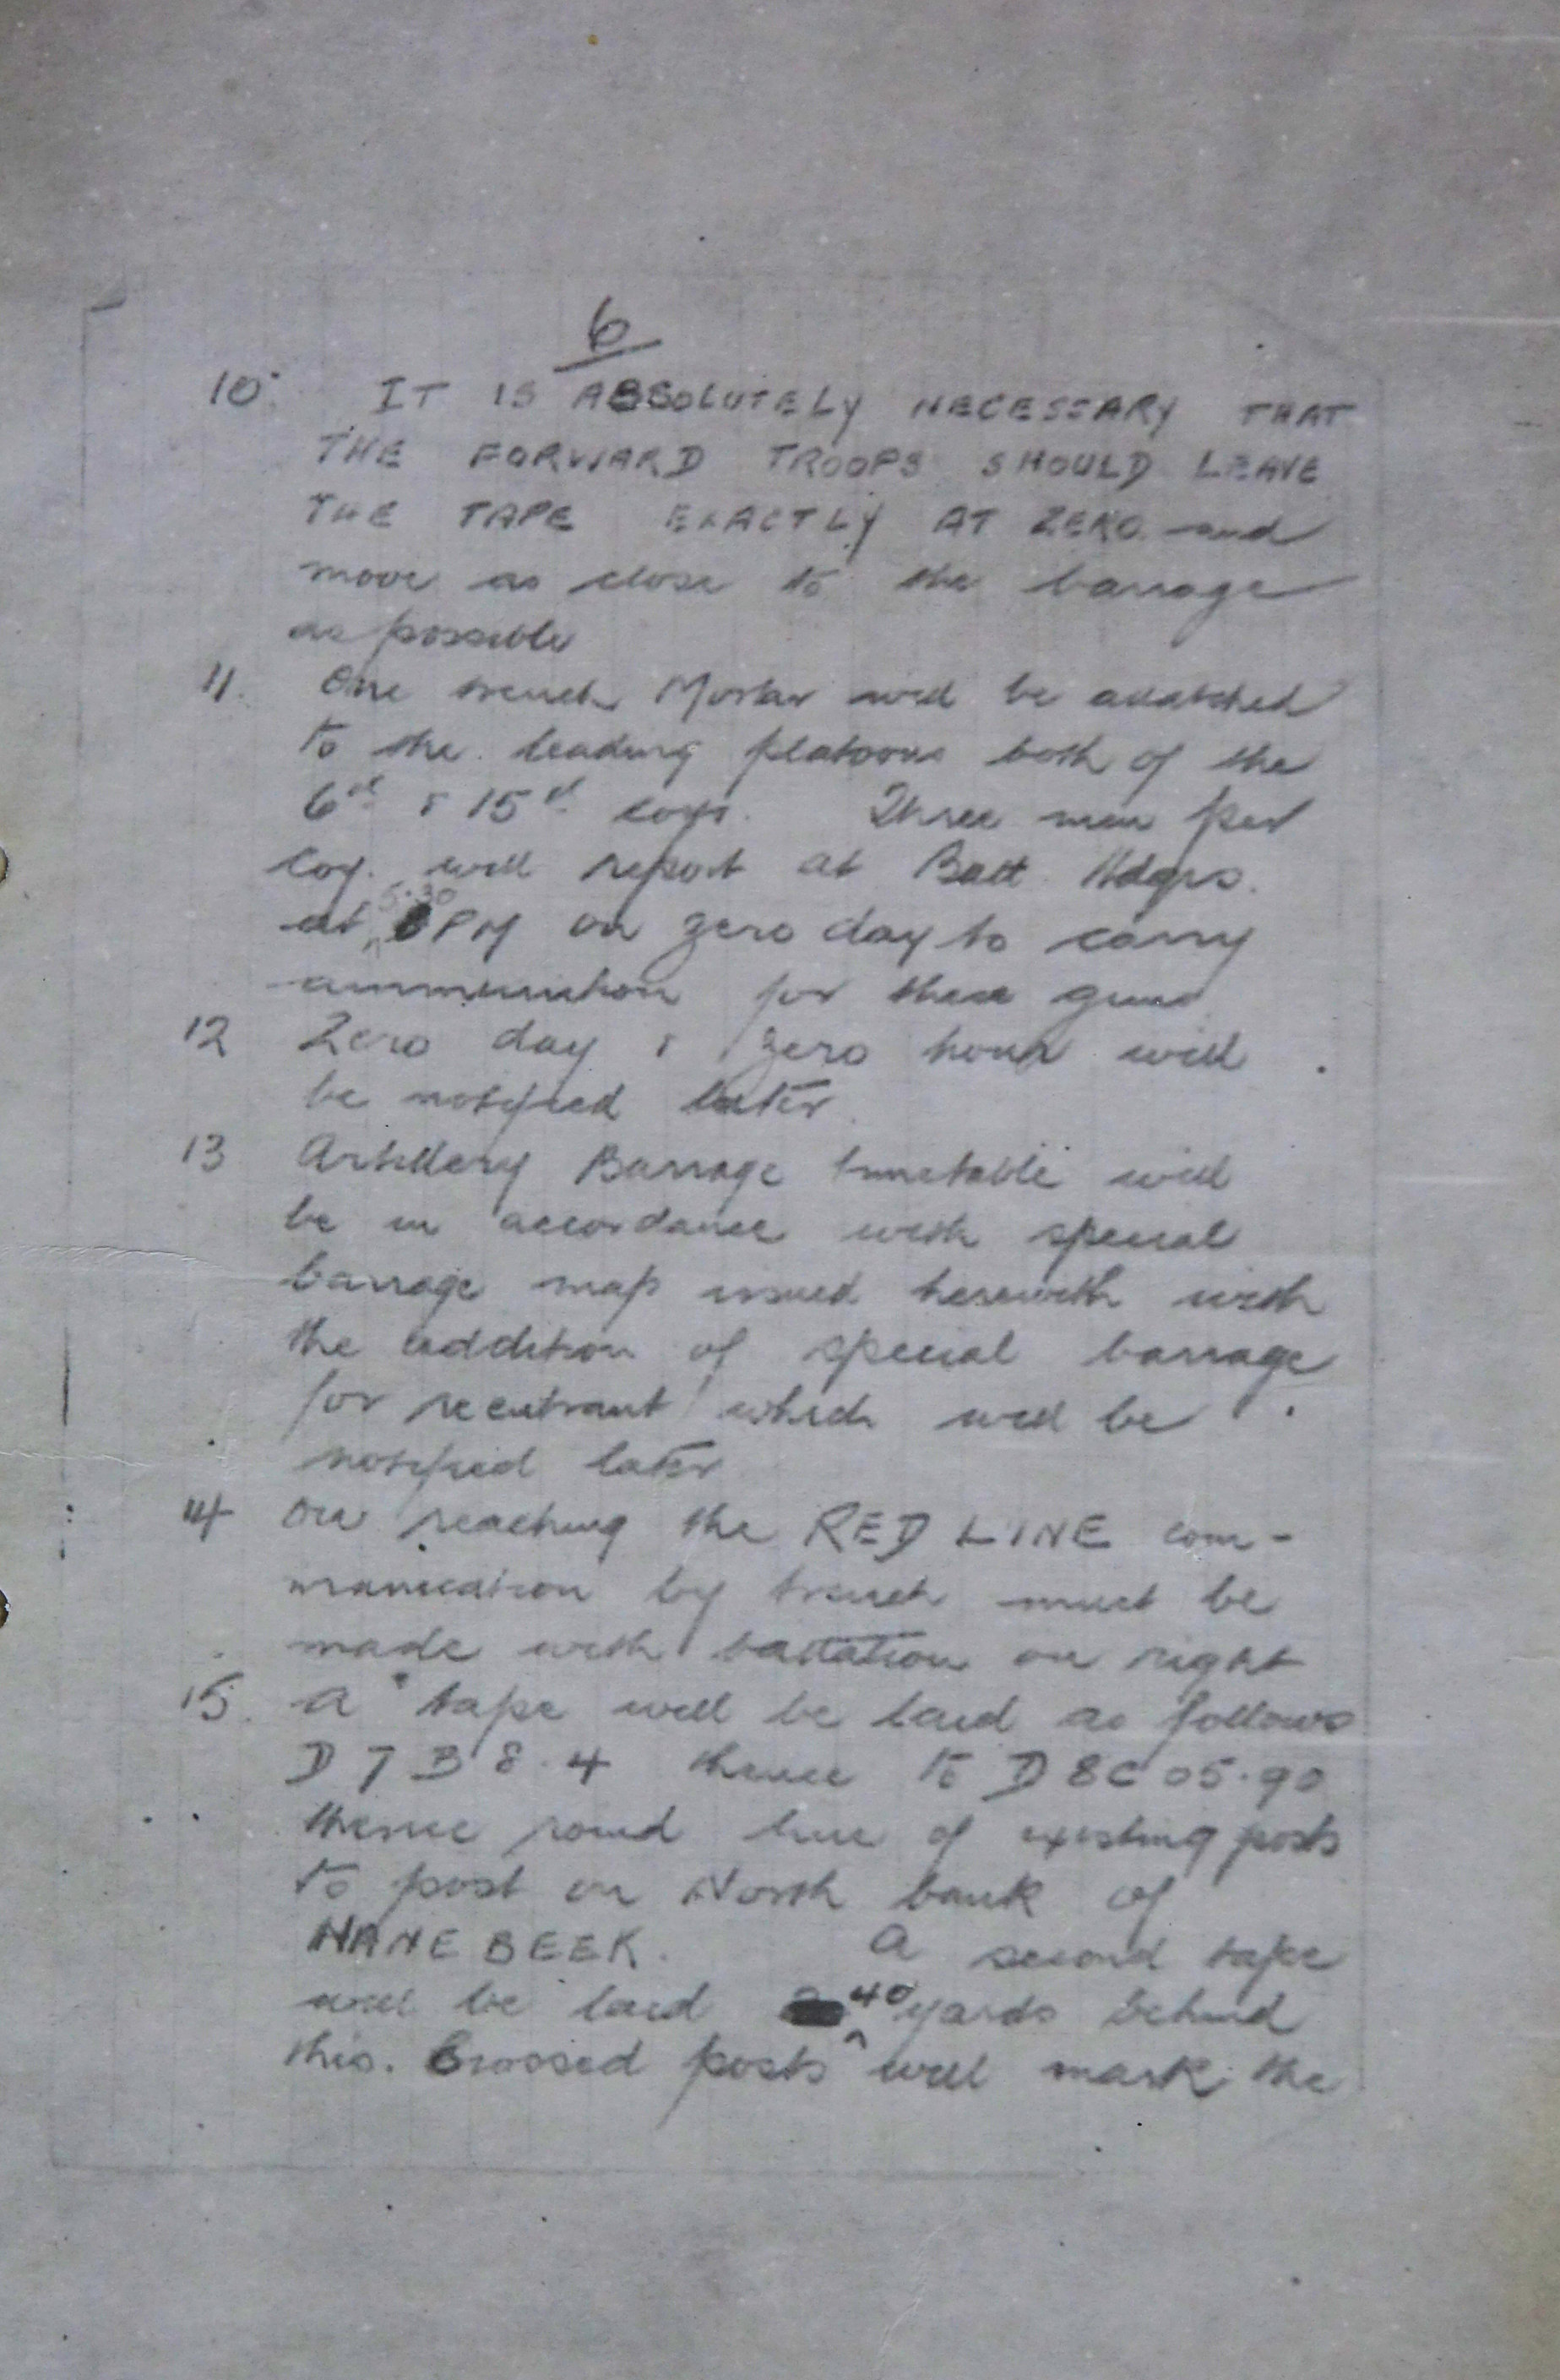 6
10. IT IS ABSOLUTELY NECESSARY THAT
THE FORWARD TROOPS SHOULD LEAVE
THE TAPE EXACTLY AT ZERO and
move as close to the barrage
as possible
11. One trench Mortar will be attatched
to the leading platoons both of the
6th & 15th coys. Three men per
coy. will report at Batt Hdqrs.
at 5.30 PM on zero day to carry
ammunition for these guns
12 Zero day & zero hour will
be notified later.
13 Artillery Barrage timetable will
be in accordance with special
barrage map issued herewith with
the addition of special barrage
for reentrant which will be
notified later
14 On reaching the RED LINE com-
munication by trench must be
made with battalion on right
15. A tape will be laid as follows
D 7 B 8.4 thence to D 8 C 05.90
thence round line of existing posts
to post on North bank of
HANEBEEK. A second tape
will be laid 40 yards behind
this. Crossed posts will mark the